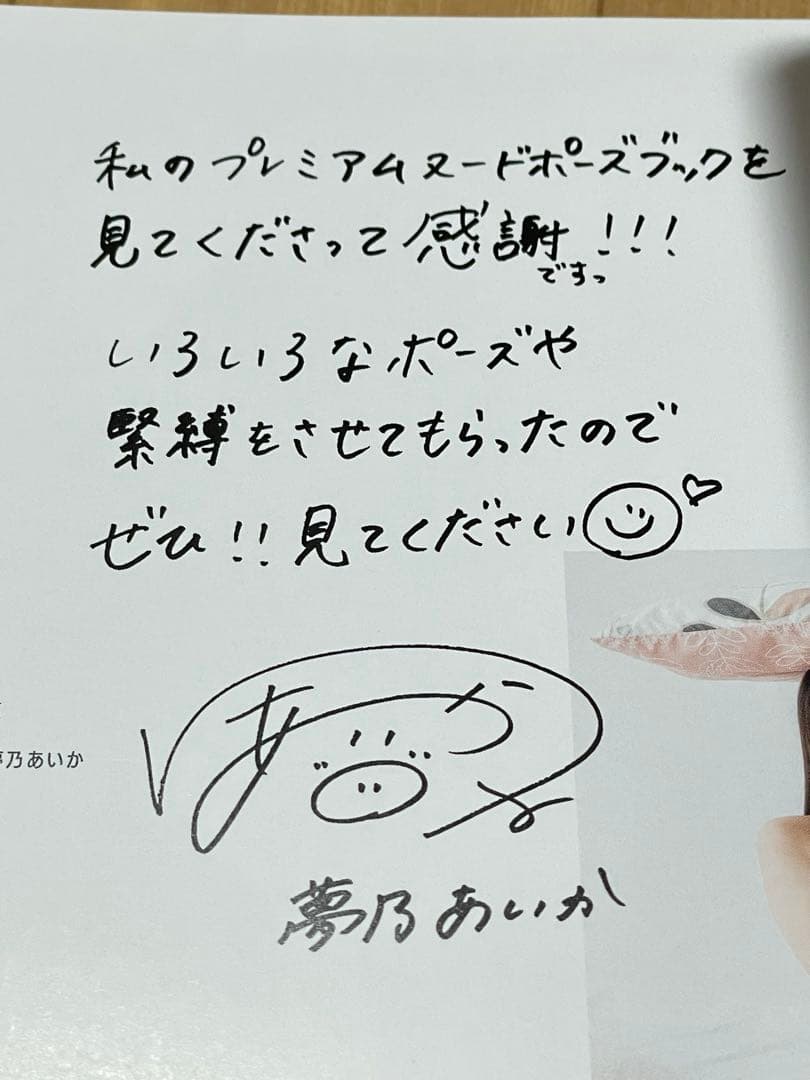 私のプレミアムヌードポーズブックを
見てくださって感謝ですっ!!!
いろいろなポーズや
緊縛をさせてもらったので
ぜひ!!見てください
乃あいか
あいか
夢乃あいか